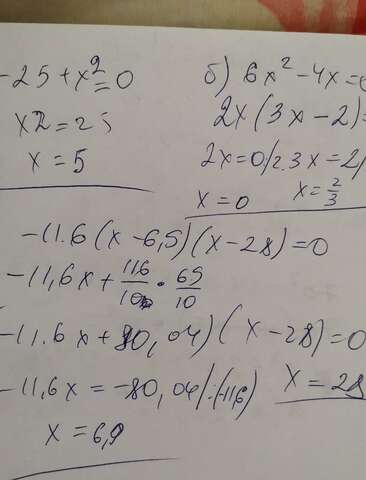 -25+x²=0
x2=25
x=5
б) 6x²-4x=0
2x(3x-2)=
2x=0/2 3x=2/
x=0 x=2/3
-11.6(x-6,5)(x-28)=0
-11,6x+116/10·65/10
-11.6x+80,04)(x-28)=0
-11,6x=-80,04/:(-11,6) x=28
x=6,9